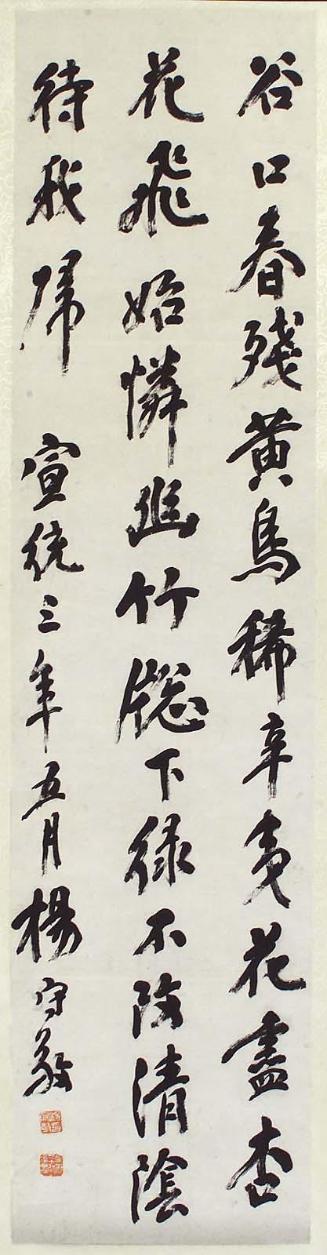 谷口春殘黄鳥稀辛夷花盡杏
花飛始憐幽竹牕下緑不改清陰
待我歸 宣統三年五月楊守敬